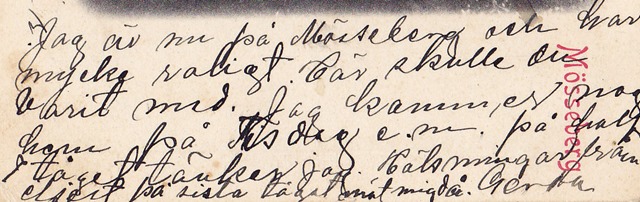 Jag är nu på Mösseberg och har
mycke roligt. Här skulle du
varit med. Jag kommer nog
hem på Tisdag e.m. på half
tåget tänker jag. Hälsningar från
eljest på sista tåget möt mig då. Gerda
Mösseberg